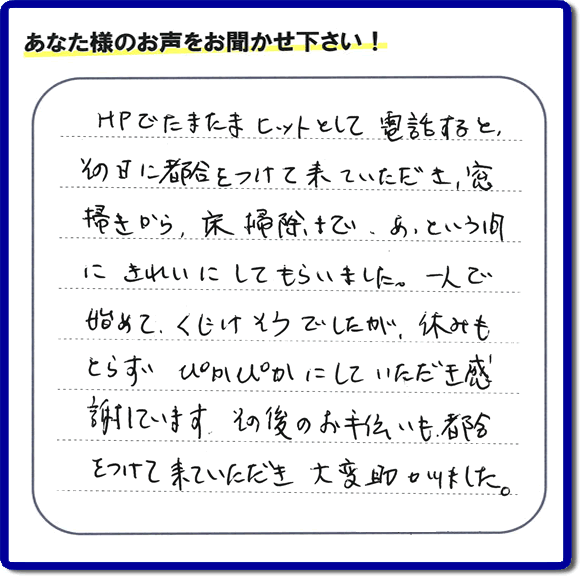 あなた様のお声をお聞かせ下さい！
HPでたまたまヒットとして電話すると、
その日に都合をつけて来ていただき、窓
掃きから、床掃除まで、あっという間
にきれいにしてもらいました。一人で
始めて、くじけそうでしたが、休みも
とらずぴかぴかにしていただき感
謝しています。その後のお手伝いも、都合
をつけて来ていただき大変助かりました。